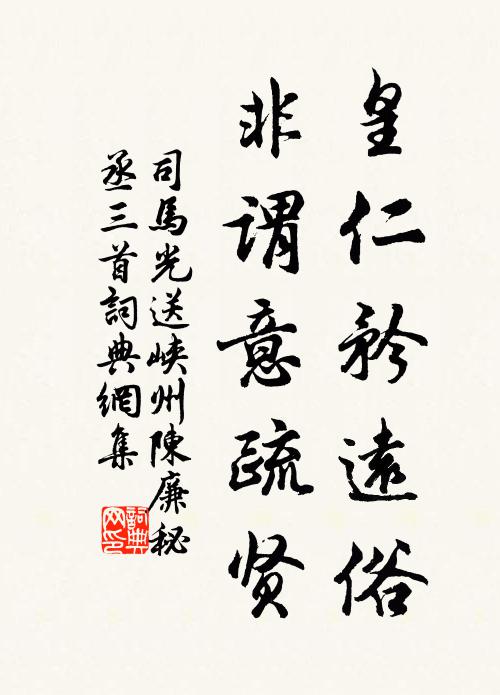 皇仁矜遠俗
非謂意疏贤
司馬光送峽州陳廉秘
丞三首詞典網集
詞典
网印